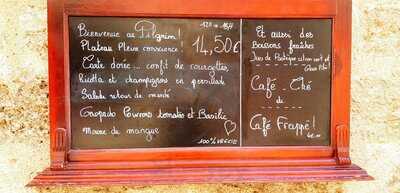 Bienvenue au Pilgrim!
12h - 15h
Plateau Pleine conscience:
14,50€
Tarte dorée... confit de courgettes,
Ricotta et champignons en persillade
Salade retour de marché
Gaspacho Poivrons tomates et Basilic
Mousse de mangue
100% VEGGIE
Et aussi des
Boissons fraîches
Jus de Pastèque citron vert et
Café - Thé
Café Frappé!